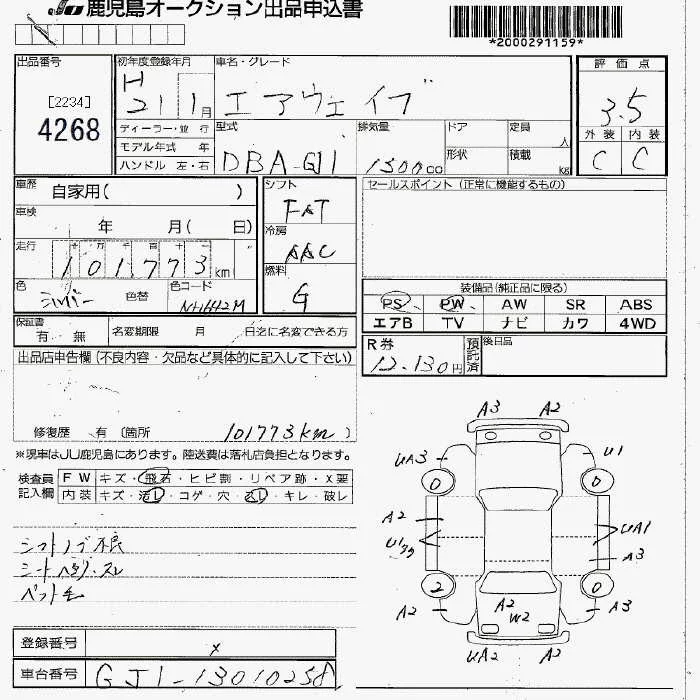 JU 鹿児島オークション出品申込書
*2000291159*
出品番号
[2234]
4268
初年度登録年月
H
21 1月
ディーラー・並 行
モデル年式 年
ハンドル 左・右
車名・グレード
エアウェイブ
型式
DBA-GJ1
排気量
1500cc
ドア
定員
人
形状
積載
kg
評価点
3.5
外装 内装
C C
車歴
自家用( )
車検
年 月( 日)
走行
十 万 千 百 十 一
101773km
色
シルバー
色替
色コード
NH642M
シフト
FAT
冷房
AAC
燃料
G
セールスポイント (正常に機能するもの)
装備品(純正品に限る)
PS PW AW SR ABS
エアB TV ナビ カワ 4WD
保証書
有 無
名変期限 月 日迄に名変できる方
R券
12.130円
預記済
後日品
出品店申告欄 (不良内容・欠品など具体的に記入して下さい)
修復歴 有 〔箇所 101773km )
※現車はJU鹿児島にあります。陸送費は落札店負担となります。
検査員記入欄
FW キズ・飛石・ヒビ割・リペア跡・X要
内装 キズ・汚れ・コゲ・穴・スレ・キレ・破レ
シフトノブ不良
シート
ペット毛
登録番号
x
車台番号
GJ1-13010258
A3 A2
UA3
U1
0 0
A2
U1
UA1
A3
2 0
A2
A2
W2
A3
UA2 A2